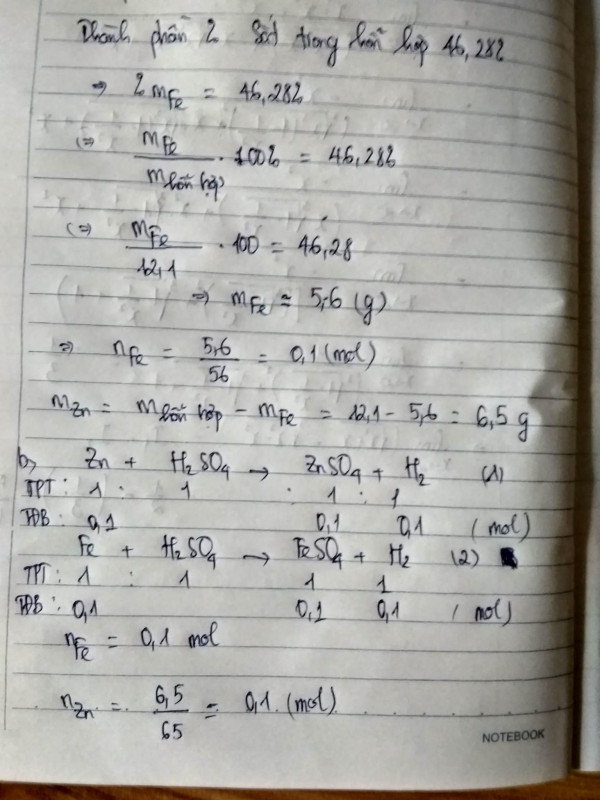 Thành phần % Sắt trong hỗn hợp 46,28%
⇒ % mFe = 46,28%
(⇒ mFe / mhỗn hợp . 100% = 46,28%
(⇒ mFe / 12,1 . 100 = 46,28
⇒ mFe ≈ 5,6 (g)
⇒ nFe = 5,6 / 56 = 0,1 (mol)
mZn = mhỗn hợp - mFe = 12,1 - 5,6 = 6,5 g
b, Zn + H2SO4 → ZnSO4 + H2 (1)
TPT: 1 : 1 : 1 : 1
TĐB: 0,1 0,1 0,1 (mol)
Fe + H2SO4 → FeSO4 + H2 (2)
TPT: 1 : 1 1 1
TĐB: 0,1 0,1 0,1 (mol)
nFe = 0,1 mol
nZn = 6,5 / 65 = 0,1 (mol)
NOTEBOOK